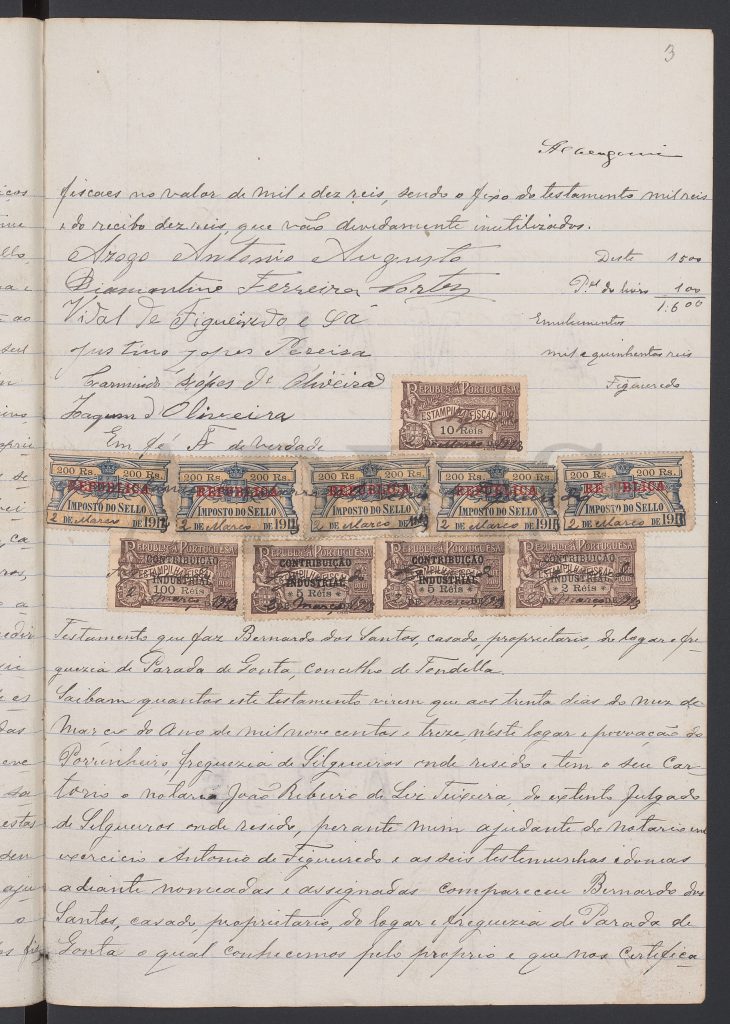 3
fiscaes no valor de mil e dez reis, sendo o fixo do testamento mil reis
e do recibo dez reis, que vão devidamente inutilizados.
Azogo Antonio Augusto
Deste 1500
Diamantino Ferreira
do livro 100
1:600
Vidal de Figueiredo e Sá
Emulumentos
Justino Lopes Pereira
mil e quinhentos reis
Carmindo Lopes de Oliveira
Figueredo
Joaquim d Oliveira
Em fé de verdade
REPUBLICA PORTUGUESA
ESTAMPILHA FISCAL
10 Réis
200 Rs. 200 Rs. 200 Rs. 200 Rs. 200 Rs. 200 Rs. 200 Rs. 200 Rs. 200 Rs. 200 Rs.
REPUBLICA REPUBLICA REPUBLICA REPUBLICA REPUBLICA
IMPOSTO DO SELLO IMPOSTO DO SELLO IMPOSTO DO SELLO IMPOSTO DO SELLO IMPOSTO DO SELLO
2 DE Março DE 1913 2 DE Março DE 1913 2 DE Março DE 1913 2 DE Março DE 1913 2 DE Março DE 1913
REPUBLICA PORTUGUESA REPUBLICA PORTUGUESA REPUBLICA PORTUGUESA REPUBLICA PORTUGUESA
CONTRIBUIÇÃO CONTRIBUIÇÃO CONTRIBUIÇÃO CONTRIBUIÇÃO
ESTAMPILHA FISCAL ESTAMPILHA FISCAL ESTAMPILHA FISCAL ESTAMPILHA FISCAL
INDUSTRIAL INDUSTRIAL INDUSTRIAL INDUSTRIAL
100 Réis * 5 Réis * * 5 Réis * * 2 Réis *
Março 1913 Março 1913 Março 1913 Março 1913
Testamento que faz Bernardo dos Santos, casado, proprietario, do logar e fre-
guezia de Parada de Gonta, concelho de Tondella.
Saibam quantos este testamento virem que aos trenta dias do mez de
Março do Ano de mil nove centos e treze, néste logar e povoação do
Porrinheiro, freguezia de Silgueiros onde resido e tem o seu Car-
torio o notario João Ribeiro de Liz Teixeira, do extinto Julgado
de Silgueiros onde resido, perante mim ajudante do notario em
exercicio Antonio de Figueiredo e as seis testemunhas idonias
adiante nomeadas e assignadas compareceu Bernardo dos
Santos, casado proprietario, do logar e freguezia de Parada de
Gonta o qual conhecemos pelo proprio e que nos certifica